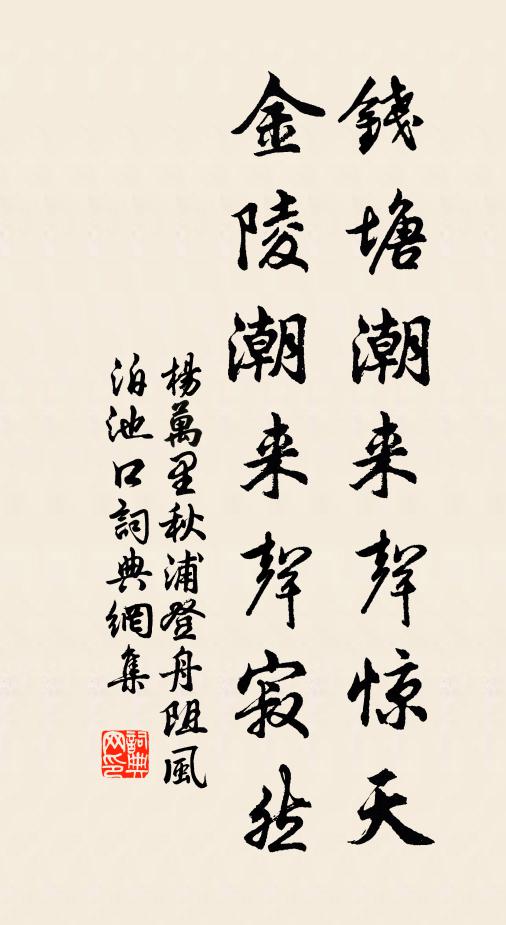 錢塘潮来聲惊天
金陵潮来聲寂然
楊萬里秋浦登舟阻風
泊池口詞典網集
詞典網印